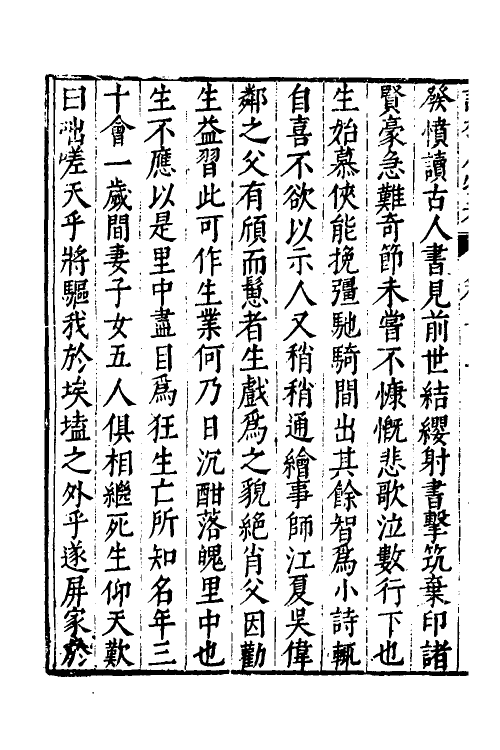 發憤讀古人書見前世結纓射書擊筑棄印諸
賢豪急難奇節未嘗不慷慨悲歌泣數行下也
生始慕俠能挽彊馳騎間出其餘智爲小詩輒
自喜不欲以示人又稍稍通繪事師江夏吳偉
鄰之父有頎而髭者生戲爲之貌絕肖父因勸
生益習此可作生業何乃日沉酣落魄里中也
生不應以是里中盡目爲狂生亡所知名年三
十會一歲間妻子女五人俱相繼死生仰天歎
曰咄嗟天乎將驅我於埃壒之外乎遂屏家於